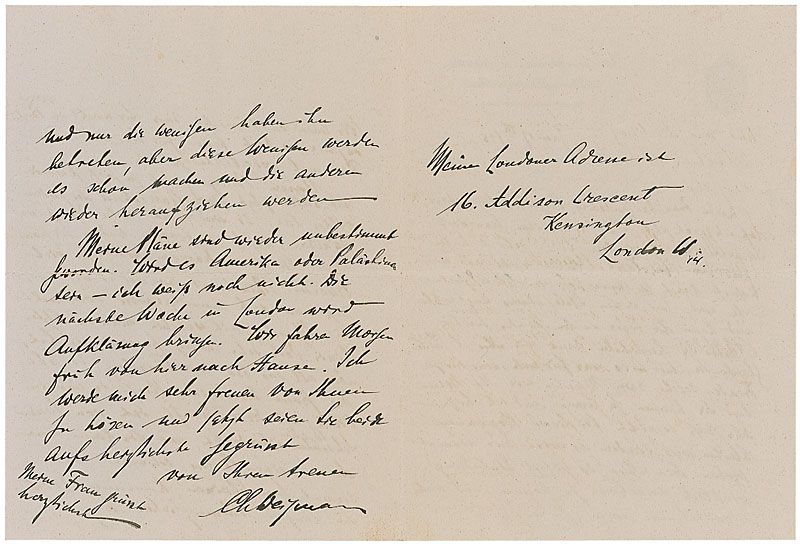 und nur die wenigen haben ihn
betreten, aber diese Wenigen werden
es schon machen und die anderen
wieder heraufziehen werden —
Meine Pläne sind wieder unbestimmt
geworden. Wird es Amerika oder Palästina
sein — ich weiß noch nicht. Die
nächste Woche in London wird
Aufklärung bringen. Wir fahren Morgen
früh von hier nach Hause. Ich
werde mich sehr freuen von Ihnen
zu hören und jetzt seien Sie beide
aufs herzlichste gegrüsst
von Ihrem treuen
Ch Weizmann
Meine Frau grüsst
herzlichst
Meine Londoner Adresse ist
16. Addison Crescent
Kensington
London W